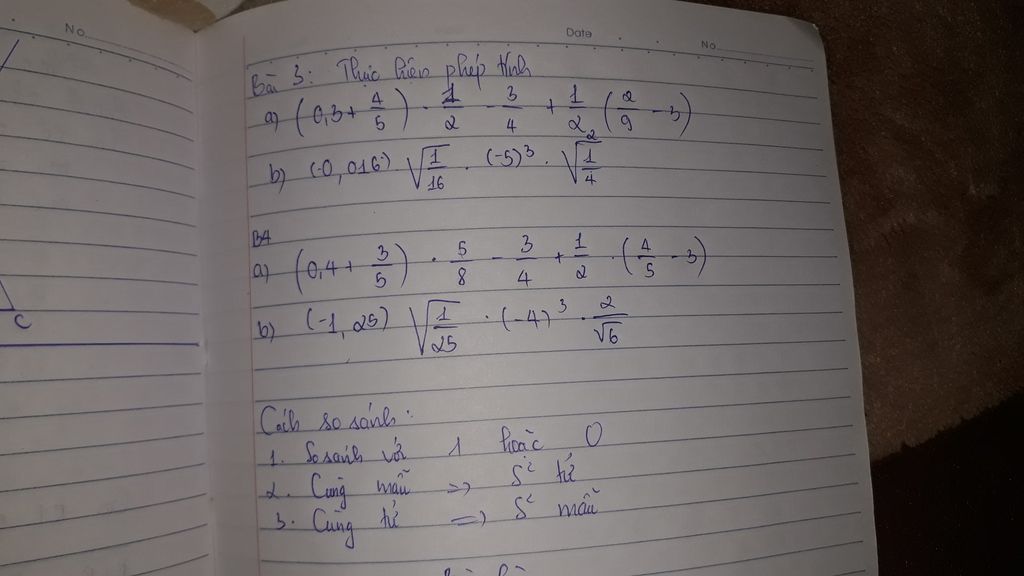 No
Date
No
Bài 3: Thực hiện phép tính
a) (0,3 + 4/5) · 1/2 - 3/4 + 1/2 (2/9 - 3)
b) (-0,016) √(1/16) · (-5)³ · √(1/4)
B4
a) (0,4 + 3/5) · 5/8 - 3/4 + 1/2 · (4/5 - 3)
b) (-1,25) √(1/25) · (-4)³ · 2/√6
C
Cách so sánh:
1. So sánh với 1 hoặc 0
2. Cùng mẫu => S² tử
3. Cùng tử => S² mẫu